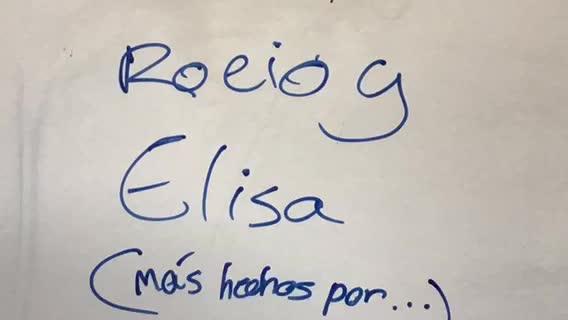 Rocio y
Elisa
(más hechos por...)